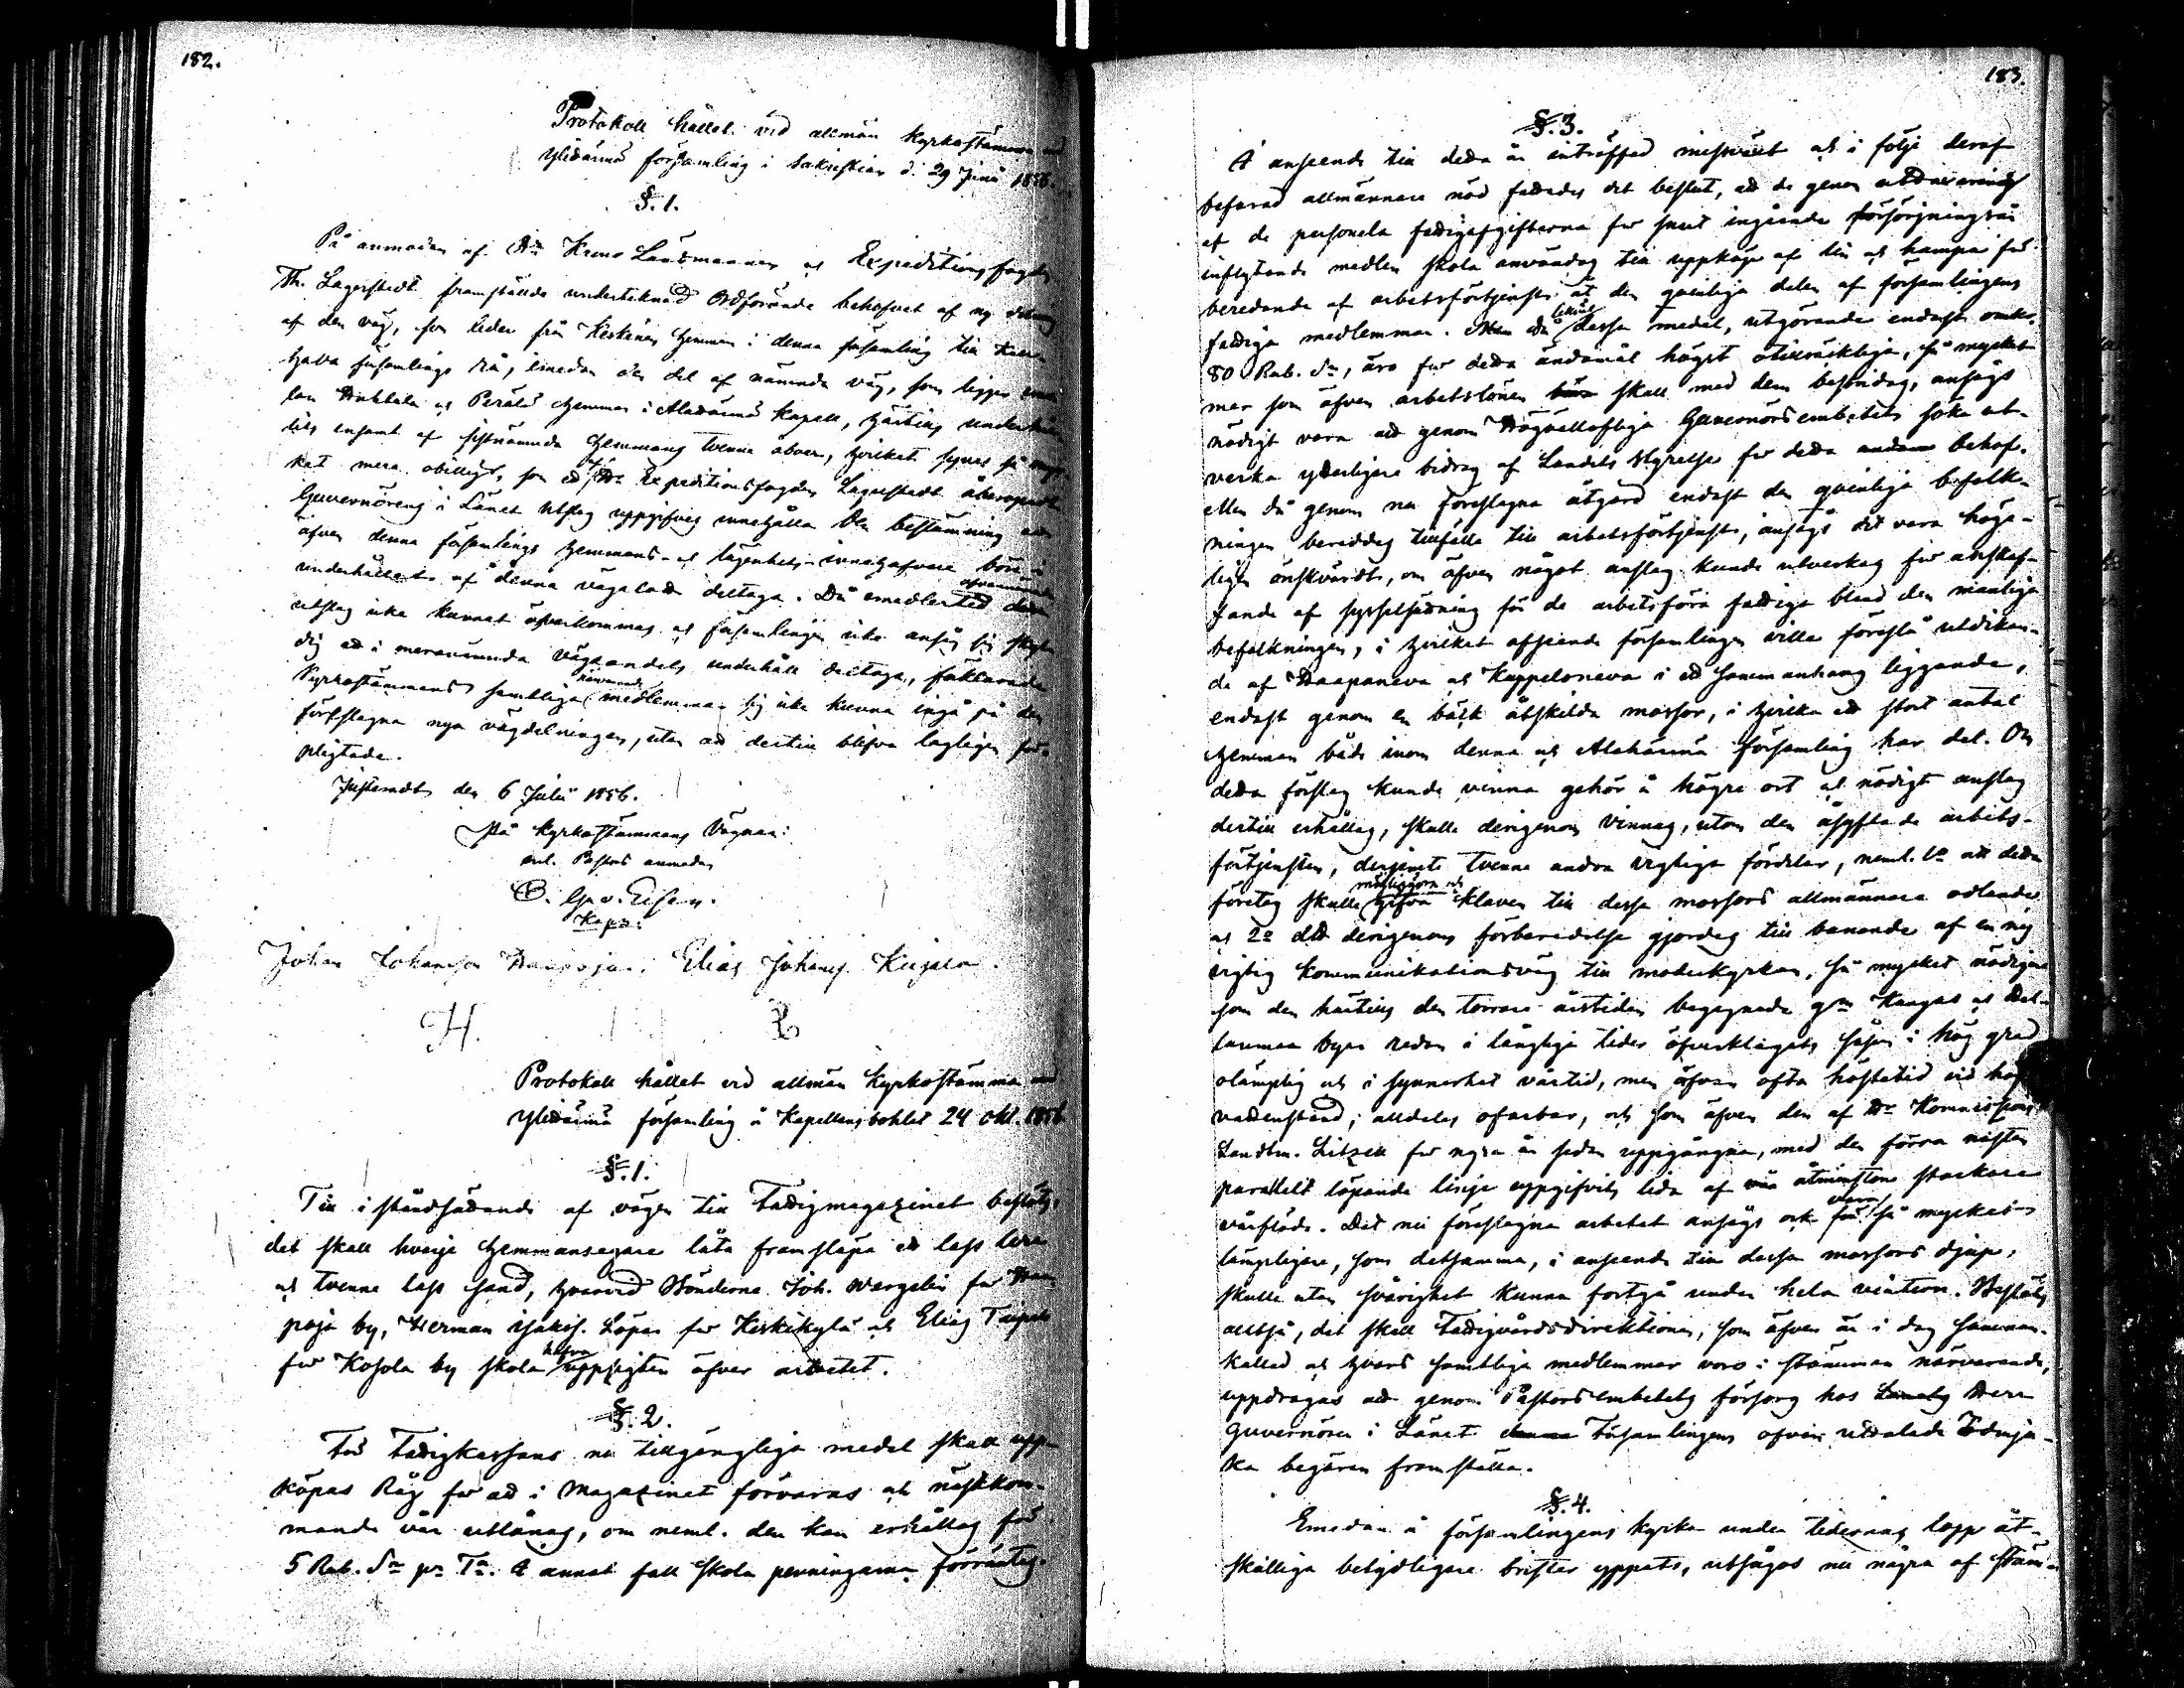 182.
Protokoll hållet vid allmän Kyrkostämma med
Ylihärmä församling i Sakristian d. 29 Juni 1856.
§. 1.
På anmodan af Hr Krono Länsmannen och Expeditionsfogden
Th. Lagerstedt framställde undertecknad Ordförande behofvet af ny delning
af den väg, som leder från Keskinen hemman i denna församling till
hava församlings rå, emedan den del af nämnde väg, som ligger emel-
lan Huhtala och Perälä hemman i Alahärmä Kapell, härtills underhål-
lits ensamt af sistnämnda hemmans tvenne åboer, hvilket synes så myc-
ket mera obilligt, som ett af Hr Expeditionsfogden Lagerstedt åberopadt
Guvernörens i Länet utslag uppgifves innehålla den bestämning att
äfven denna församlings hemmans- och lägenhets-innehafvare böra i
underhållet af denna vägaladt deltaga. Då emedlertid detta ofvannämnda
utslag icke kunnat öfverkommas och församlingen icke ansåg sig skyl-
dig att i meranämnda vägandels underhåll deltaga, förklarade
Kyrkostämmans samtliga närvarande medlemmar sig icke kunna ingå på den
föreslagna nya vägdelningen, utan att dertill blifva lagligen för-
pligtade.
Justeradt den 6 Julii 1856.
På Kyrkostämmans Vägnar:
enl. Pastors anmodan
G. v. Essen.
Kapn:
Johan Johansson Haapoja. Elias Johans. Kujala.
H. R
Protokoll hållet vid allmän Kyrkostämma med
Ylihärmä församling å Kapellansbohlet 24 Okt. 1856
§. 1.
Till i ståndsättande af vägen till Fattigmagazinet beslöts,
det skall hvarje hemmansegare låta framsläpa ett lass lera
och tvenne lass sand, hvarvid Bönderna Joh. Wargelin för Haa-
poja by, Herman Isaks. Löpar för Keskikylä och Elias Taipale
för Kosola by skola hafva uppsigten öfver arbetet.
§. 2.
För Fattigkassans nu tillgängliga medel skall upp-
köpas Råg för att i Magazinet förvaras och nästkom-
mande vår utlånas, om neml. den kan erhållas för
5 Rub. Sr pr Ta. I annat fall skola penningarna förräntas.
183.
§. 3.
I anseende till detta år inträffad missväxt och i följe deraf
befarad allmännare nöd fattades det beslut, att de genom uttaxering
af de personela fattigafgifterna för snart ingående försörjningsår
inflytande medlen skola användas till uppköp af lin och hampa för
beredande af arbetsförtjenst åt den qvinliga delen af församlingens
fattiga medlemmar. Men då likväl dessa medel, utgörande endast omkr.
80 Rub. Sr, äro för detta ändamål högst otillräckliga, så mycket
mer som äfven arbetslönen skall med dem bestridas, ansågs
nödigt vara att genom Högvällofliga Guvernörsembetet söka ut-
verka ytterligare bidrag af Landets Styrelse för detta behof.
Men då genom nu föreslagna åtgärd endast den qvinliga befolk-
ningen bereddes tillfälle till arbetsförtjenst, ansågs det vara höge-
ligen önskvärdt, om äfven något anslag kunde utverkas för anskaf-
fande af sysselsättning för de arbetsföra fattiga bland den manliga
befolkningen, i hvilket afseende församlingen ville föreslå utdikan-
de af Haapaneva och Kuppeloneva i ett sammanhang liggande,
endast genom en bäck åtskilda mossor, i hvilka ett stort antal
hemman både inom denna och Alahärmä församling har del. Om
detta förslag kunde vinna gehör å högre ort och nödigt anslag
dertill erhållas, skulle derigenom vinnas, utom den åsyftade arbets-
förtjensten, derjemte tvenne andra vigtiga fördelar, neml. 1o att detta
företag skulle möjliggöra och gifva klaven till dessa mossors allmännare odlande
och 2o att derigenom förberedelse gjordes till banande af en ny
vigtig kommunikationsväg till moderkyrkan, så mycket nödigare
som den härtills den torrare årstiden begagnade gm Kangas och
luomaa byar redan i långliga tider öfverklagats såsom i hög grad
olämplig och i synnerhet vårtid, men äfven ofta höstetid vid högt
vattenstånd, alldeles ofarbar, och som äfven den af Hr Kommissions
Landtm. Litzell för några år sedan uppgångna, med den förra nästan
parallelt löpande linje uppgifvits lida af åtminstone starkare
vårflöde. Det nu föreslagna arbetet ansågs ock vara så mycket
lämpligare, som detsamma, i anseende till dessa mossors djup,
skulle utan svårighet kunna fortgå under hela vintern. Beslöts
alltså, det skall Fattigvårdsdirektionen, som äfven är i dag samman-
kallad och hvars samtliga medlemmar voro i stämman närvarande,
uppdragas att genom Pastorsembetets försorg hos Herr
Guvernören i Länet Församlingens ofvan uttalade ödmju-
ka begäran framställa.
§. 4.
Emedan å församlingens kyrka under tidernas lopp åt-
skilliga betydligare brister yppats, utsågos nu några af stäm-